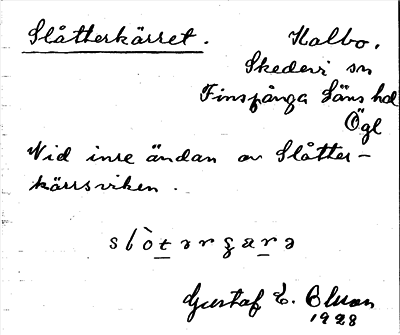 Slåtterkärret. Kalbo.
Skedevi sn
Finspånga läns hd
Ögl
Vid inre ändan av Slåtter-
kärrsviken.
Gustaf E.
1928